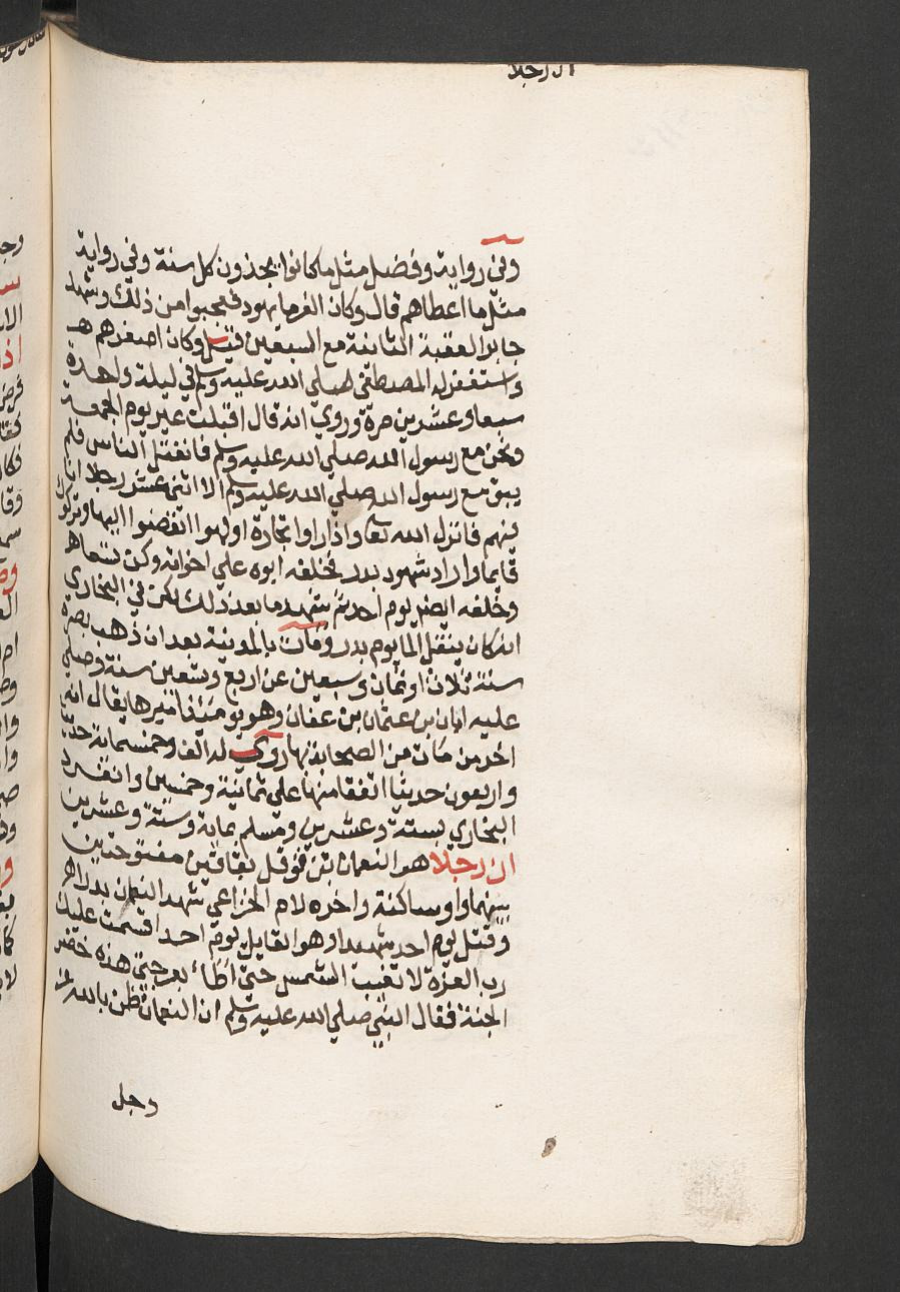 ان رجلا
وفي رواية وفضل مثل ما كانوا يجذون كل سنة وفي رواية
مثل ما اعطاهم قال وكان الغرما يهود فعجبوا من ذلك وشهد
جابر العقبة الثانية مع السبعين قيل وكان اصغرهم
واستغفر له المصطفى صلي الله عليه وسلم في ليلة واحدة
سبعا وعشرين مرة وروي انه قال اقبلت عير يوم الجمعة
ونحن مع رسول الله صلي الله عليه وسلم فانفتل الناس فلم
يبق مع رسول الله صلي الله عليه وسلم الا اثني عشر رجلا انا
منهم فانزل الله تعا واذا راوا تجارة او لهوا انفضوا اليها وتركوك
قايما واراد شهود بدر فخلفه ابوه علي اخواته وكن تسعا
وخلفه ايضا يوم احد ثم شهد ما بعد ذلك لكن في البخاري
انه كان ينقل الما يوم بدر ومات بالمدينة بعد ان ذهب بصره
سنة ثلاث او ثمان وسبعين عن اربع وتسعين سنة وصلي
عليه ابان بن عثمان بن عفان وهو يومئذ اميرها يقال انه
اخر من مات من الصحابة بها روي له الف وخمسماية حديث
واربعون حديثا اتفقا منها علي ثمانية وخمسين وانفرد
البخاري بستة وعشرين ومسلم بماية وستة وعشرين
ان رجلا هو النعمان بن قوقل بقافين مفتوحتين
بينهما واو ساكنة واخره لام الخزاعي شهد النعمان بدرا
وقتل يوم احد شهيدا وهو القايل يوم احد اقسمت عليك
رب العزة لا تغيب الشمس حتي اطاء بعرجتي هذه خضر
الجنة فقال النبي صلي الله عليه وسلم ان النعمان ظن بالله عز
وجل